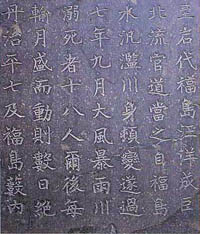 至岩代福島汪洋成巨
北流官道當之自福島
水汎濫川身頓變遂過
七年九月大風暴雨川
溺死者十八人爾後毎
輪月盛而動則數日絶
丹治平七及福島内